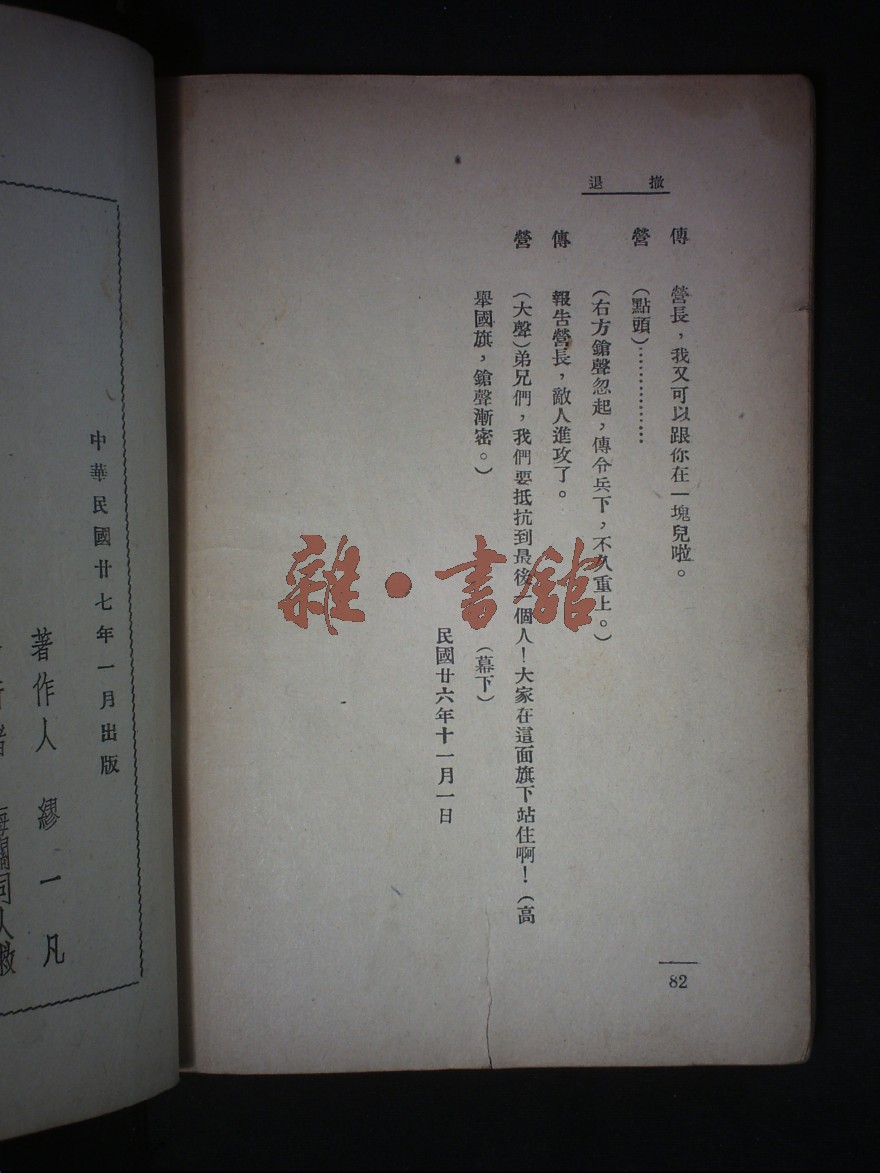 撤退
傳　營長，我又可以跟你在一塊兒啦。
營　（點頭）………………
（右方鎗聲忽起，傳令兵下，不久重上。）
傳　報告營長，敵人進攻了。
營　（大聲）弟兄們，我們要抵抗到最後一個人！大家在這面旗下站住啊！（高
舉國旗，鎗聲漸密。）　（幕下）
民國廿六年十一月一日
82
雜·書館
中華民國廿七年一月出版
著作人　繆一凡
海關同人救